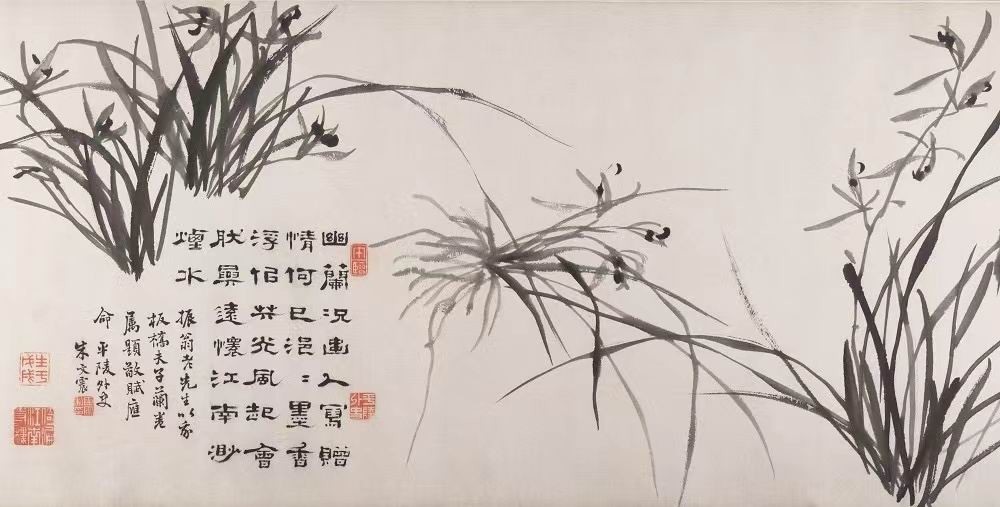 幽蘭況幽人寫贈
情何已浥〻墨香
浮佀共光風起會
肰興遠懷江南渺
煙水
振翁老先生以家
板橋夫子蘭卷
屬題敬賦應
命 平陵外史
朱文震